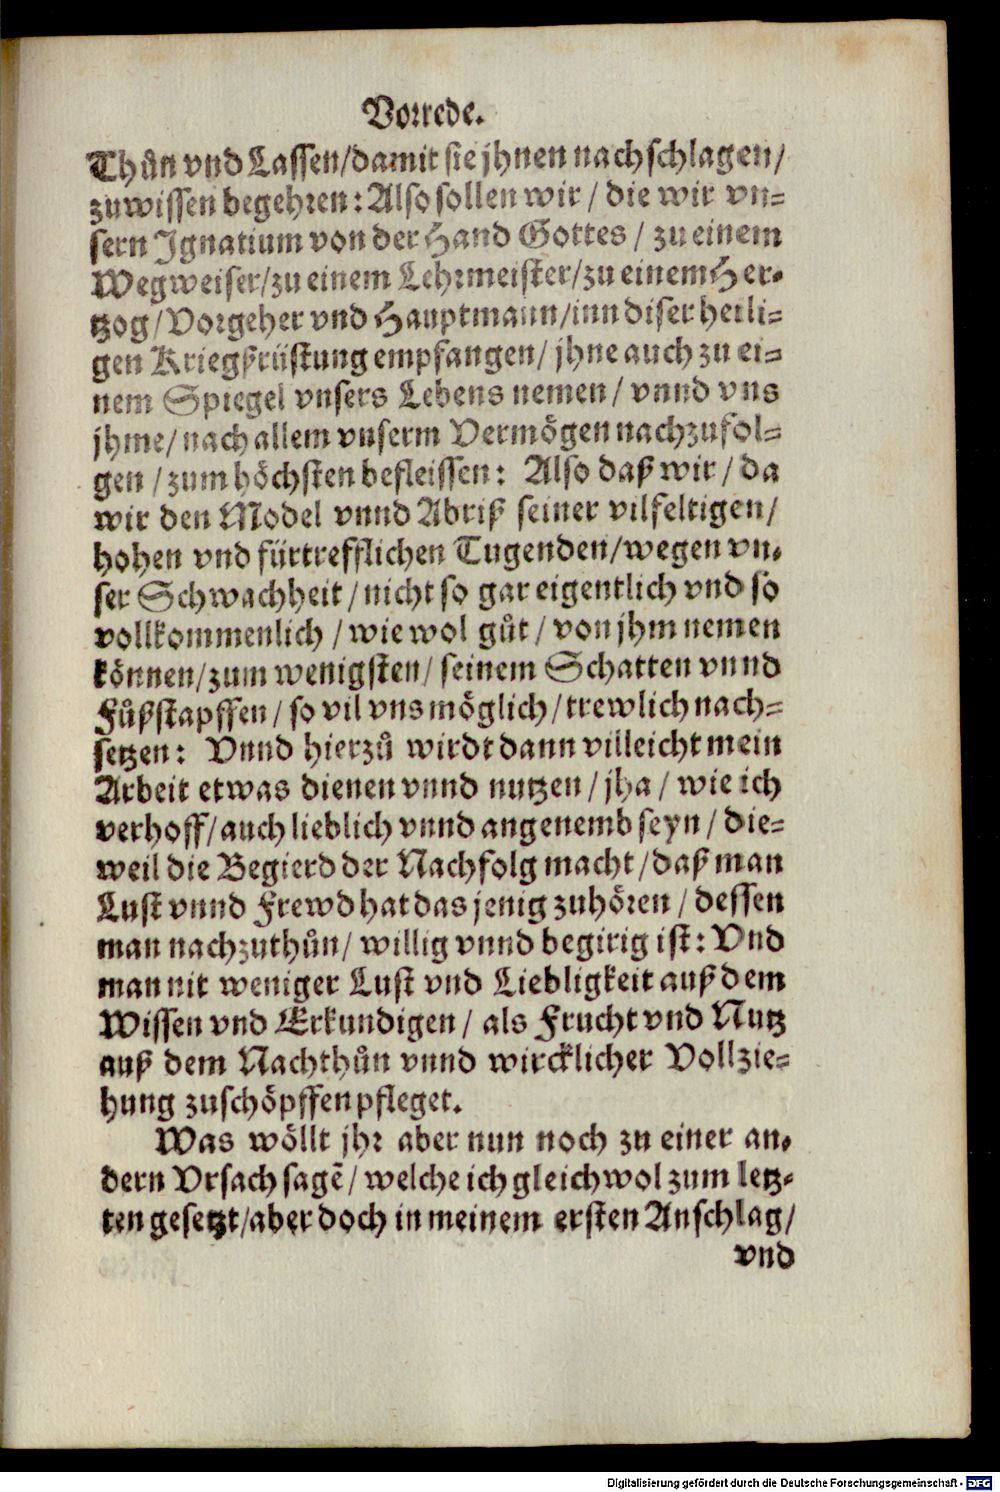 Vorrede.
Thůn vnd Lassen/damit sie jhnen nachschlagen/
zuwissen begehren: Also sollen wir / die wir vn=
sern Ignatium von der Hand Gottes / zu einem
Wegweiser/zu einem Lehrmeister/zu einem Her=
tzog/Vorgeher vnd Hauptmann/inn diser heili=
gen Kriegßrüstung empfangen/ jhne auch zu ei=
nem Spiegel vnsers Lebens nemen/ vnnd vns
jhme/nach allem vnserm Vermögen nachzufol=
gen /zum höchsten befleissen: Also daß wir / da
wir den Model vnnd Abriß seiner vilfeltigen/
hohen vnd fürtrefflichen Tugenden/wegen vn=
ser Schwachheit / nicht so gar eigentlich vnd so
vollkommenlich / wie wol gůt / von jhm nemen
können/zum wenigsten/ seinem Schatten vnnd
Fůßstapffen/ so vil vns möglich/trewlich nach=
setzen: Vnnd hierzů wirdt dann villeicht mein
Arbeit etwas dienen vnnd nutzen / jha / wie ich
verhoff/auch lieblich vnnd angenemb seyn / die=
weil die Begierd der Nachfolg macht /daß man
Lust vnnd Frewd hat das jenig zuhören / dessen
man nachzuthůn/ willig vnnd begirig ist: Vnd
man nit weniger Lust vnd Liebligkeit auß dem
Wissen vnd Erkundigen/ als Frucht vnd Nutz
auß dem Nachthůn vnnd wircklicher Vollzie=
hung zuschöpffen pfleget.
Was wöllt jhr aber nun noch zu einer an=
dern Vrsach sagẽ/ welche ich gleichwol zum letz=
ten gesetzt/aber doch in meinem ersten Anschlag/
vnd
Digitalisierung gefördert durch die Deutsche Forschungsgemeinschaft - DFG